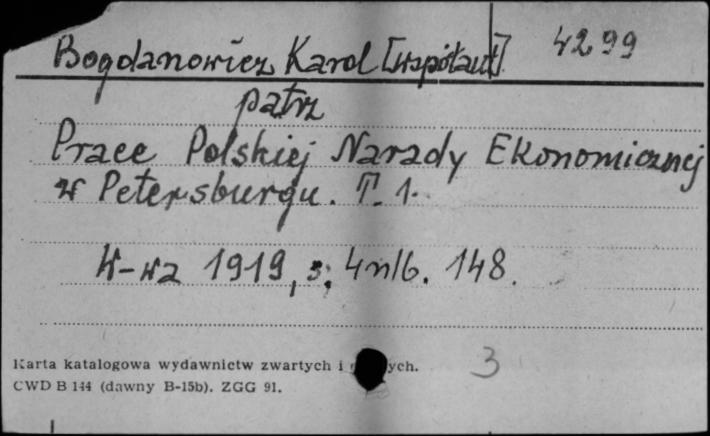 Bogdanowicz Karol [współaut] 4299
patrz
Prace Polskiej Narady Ekonomicznej
w Petersburgu. T. 1.
W-wa 1919, s. 4nlb. 148.
Karta katalogowa wydawnictw zwartych i
CWD B 144 (dawny B-15b). ZGG 91.
3